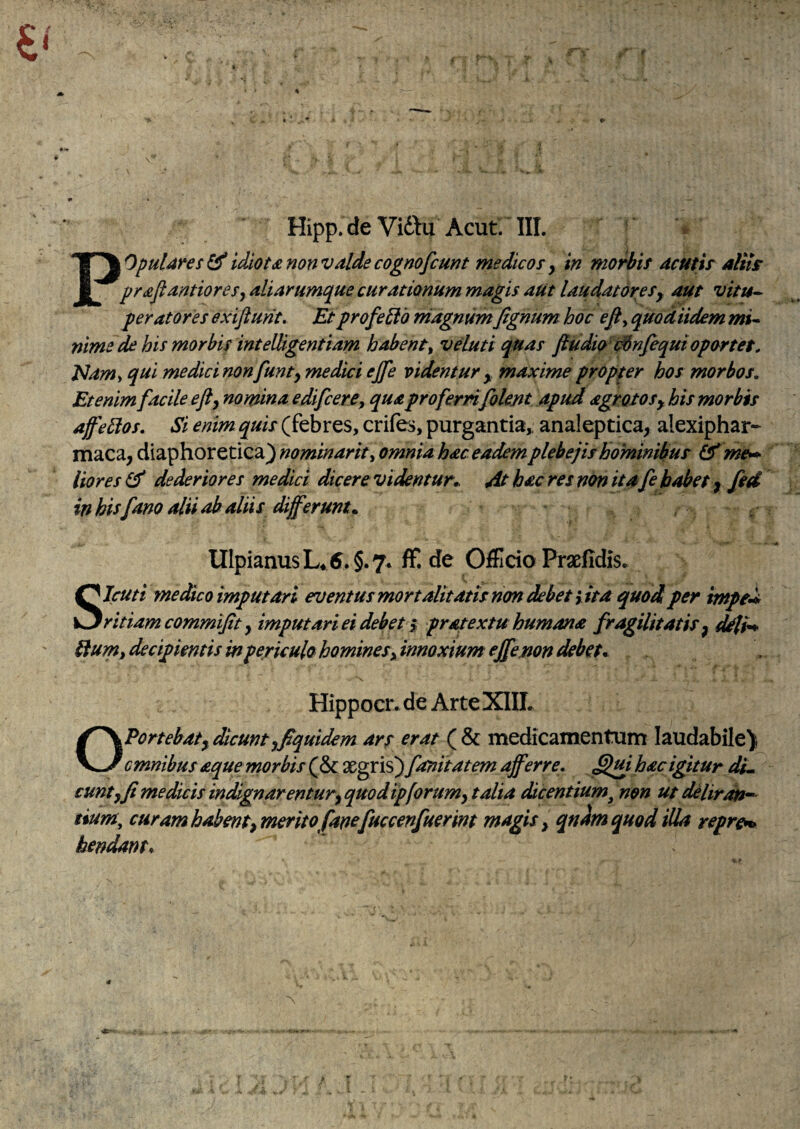 Hipp. de Victu Acut. III.
POpulares & idiotæ non valde cognoſcunt medicos, in morbis acutis aliis
præſtantiores, aliarumque curationum magis aut laudatores, aut vitu-
peratores exiſtunt. Et profecto magnum ſignum hoc eſt, quod iidem mi-
nime de his morbis intelligentiam habent, veluti quas ſtudio conſequi oportet.
Nam, qui medici non ſunt, medici eſſe videntur, maxime propter hos morbos.
Etenim facile eſt, nomina ediſcere, quæ proferri ſolent apud ægrotos, his morbis
affectos. Si enim quis (febres, criſes, purgantia, analeptica, alexiphar-
maca, diaphoretica) nominarit, omnia hæc eadem plebejis hominibus & me-
liores & dederiores medici dicere videntur. At hæc res non ita ſe habet, ſed
in his ſano alii ab aliis differunt.
Ulpianus L. 6. §. 7. ff. de Officio Præſidis.
SIcuti medico imputari eventus mortalitatis non debet; ita quod per impe-
ritiam commiſit, imputari ei debet; prætextu humanæ fragilitatis, deli-
ctum, decipientis in periculo homines, innoxium eſſe non debet.
Hippocr. de Arte XIII.
OPortebat, dicunt, ſiquidem ars erat (& medicamentum laudabile)
omnibus æque morbis (& ægris) ſanitatem afferre. Qui hæc igitur di-
cunt, ſi medicis indignarentur, quod ipſorum, talia dicentium, non ut deliran-
tium, curam habent, merito ſane ſuccenſuerint magis, quàm quod illa repre-
hendant.